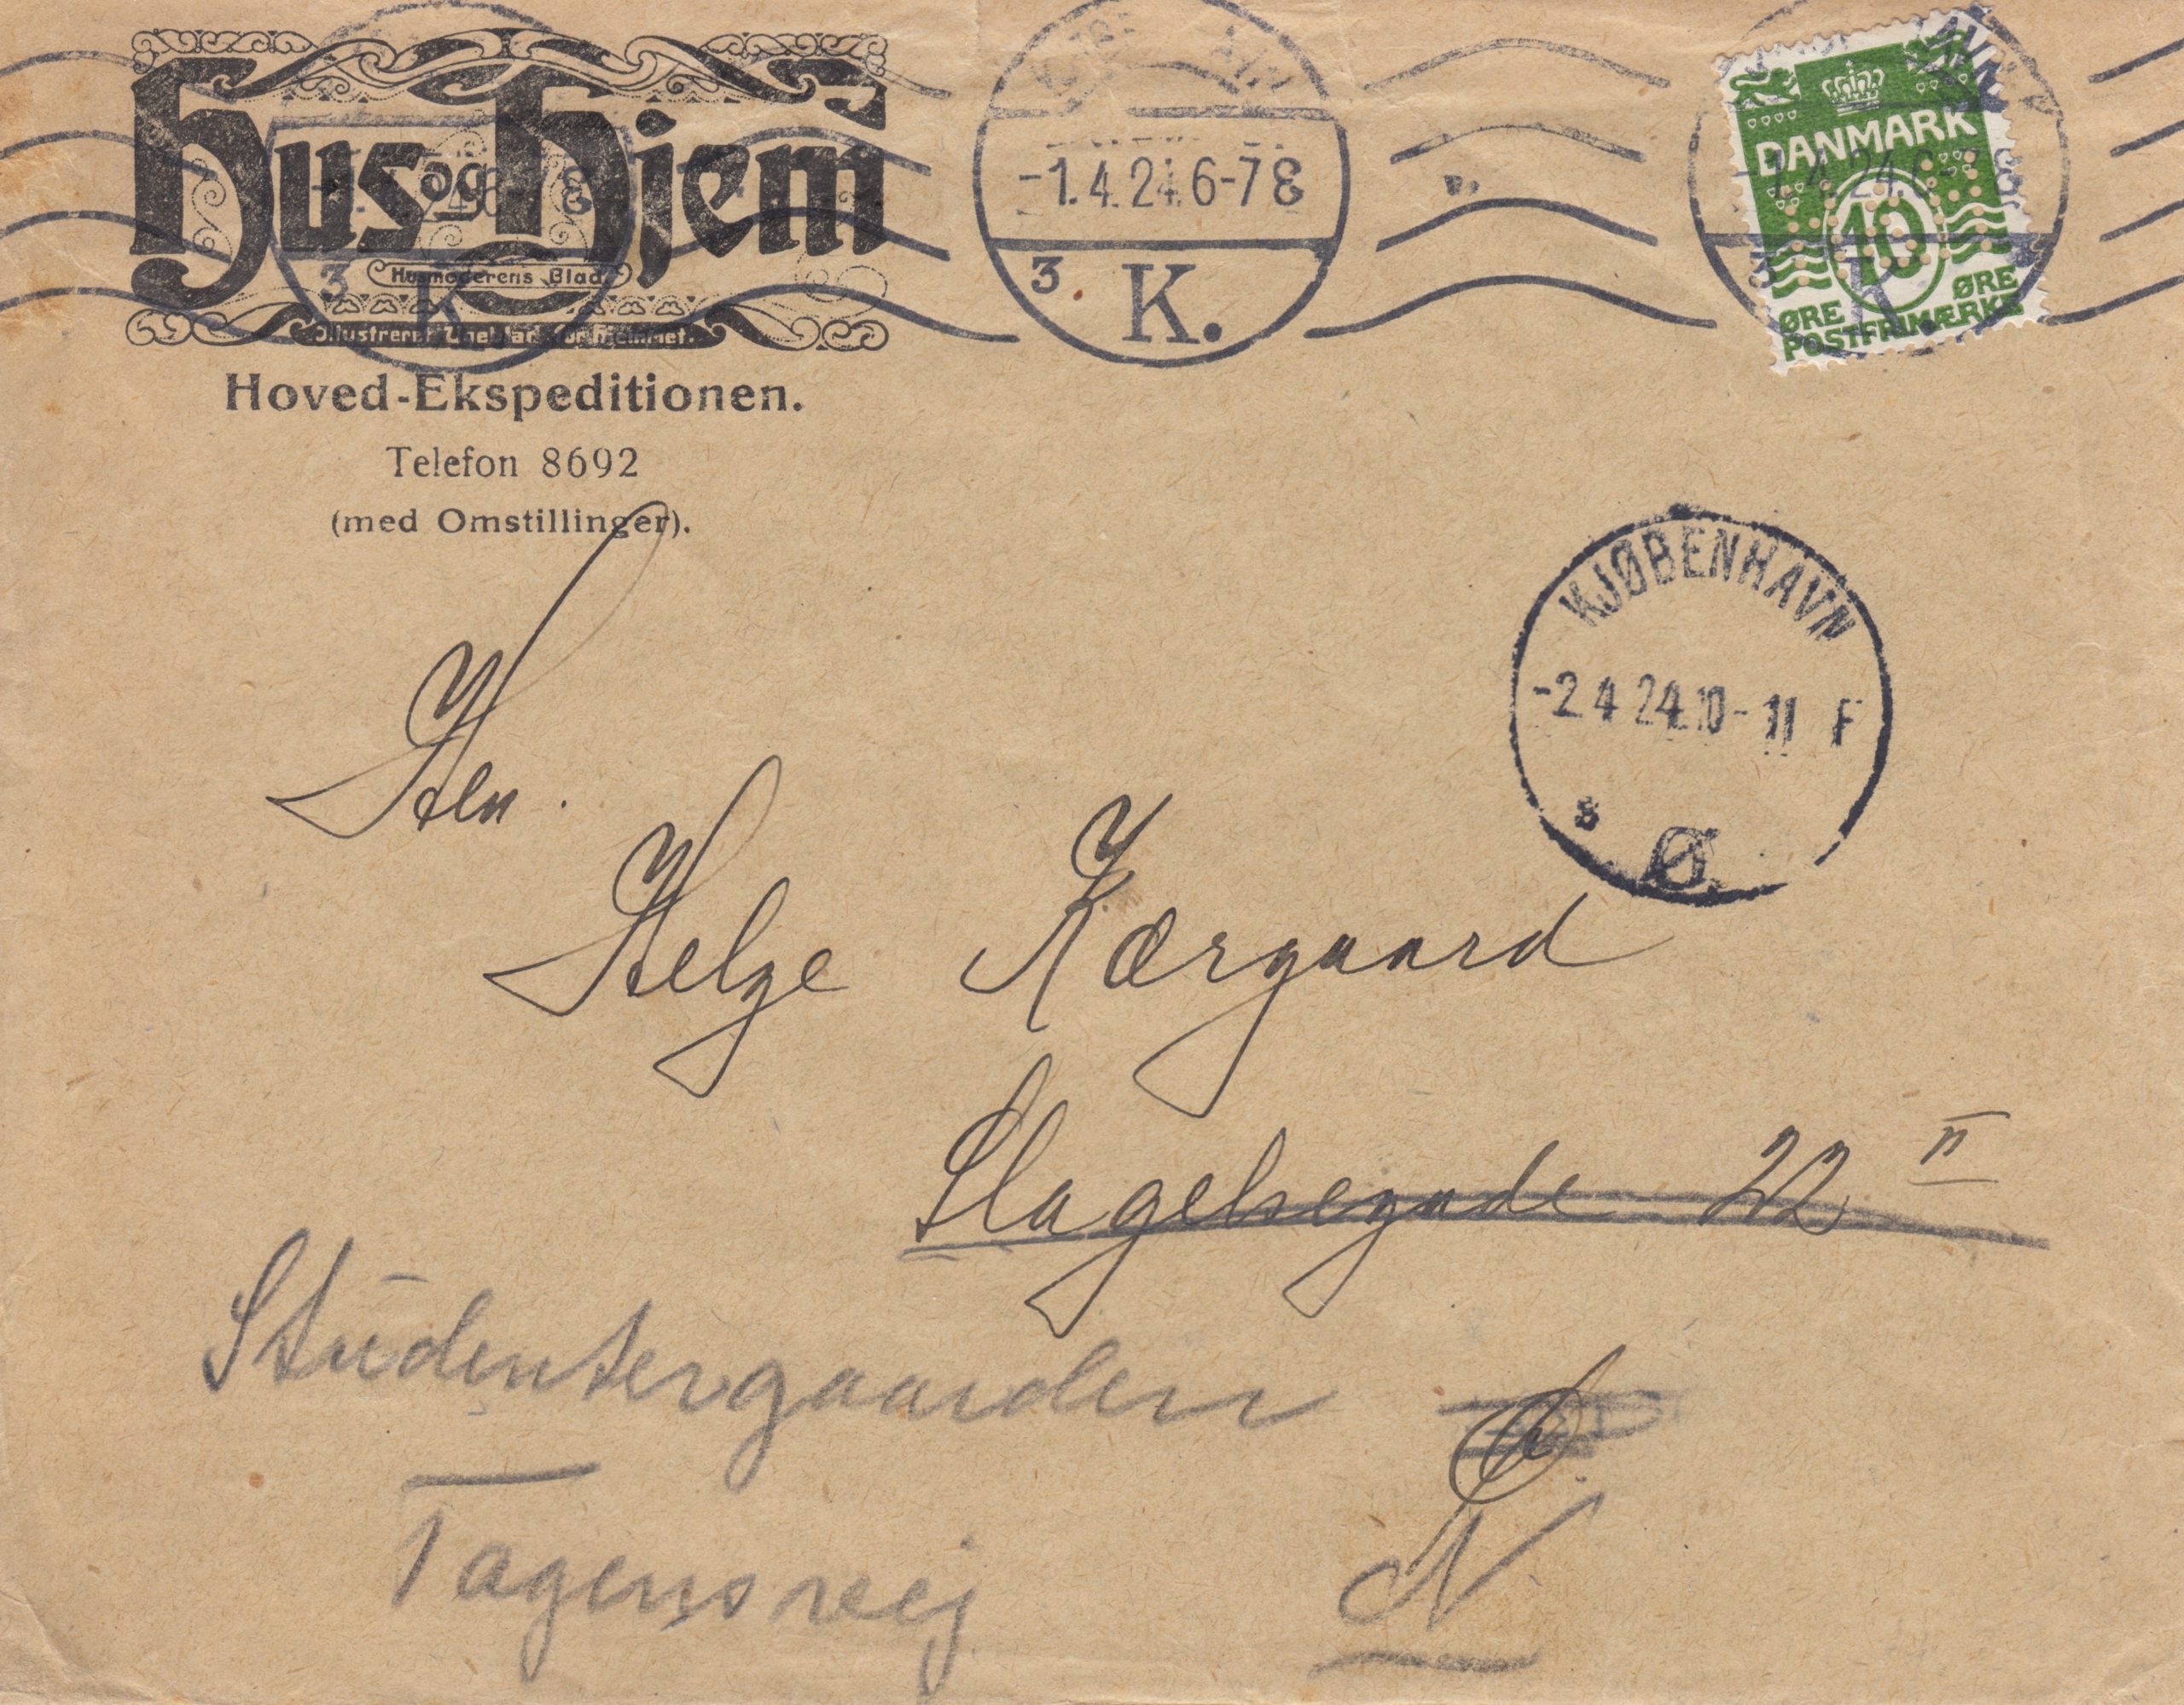 Hus og Hjem
Husmoderens Blad
Illustreret Ugeblad for Hjemmet.
Hoved-Ekspeditionen.
Telefon 8692
(med Omstillinger).
3 K.
-1.4.24.6-7 E
3 K.
DANMARK
10
ØRE ØRE
POSTFRIMÆRKE
-1.4.24.6-7 E
3 K.
KJØBENHAVN
-2 4 24.10-11 F
8 Ø.
Hrn.
Helge Kærgaard
Slagelsegade 22 II
Studentergaarden
Ø.
Tagensvej
N